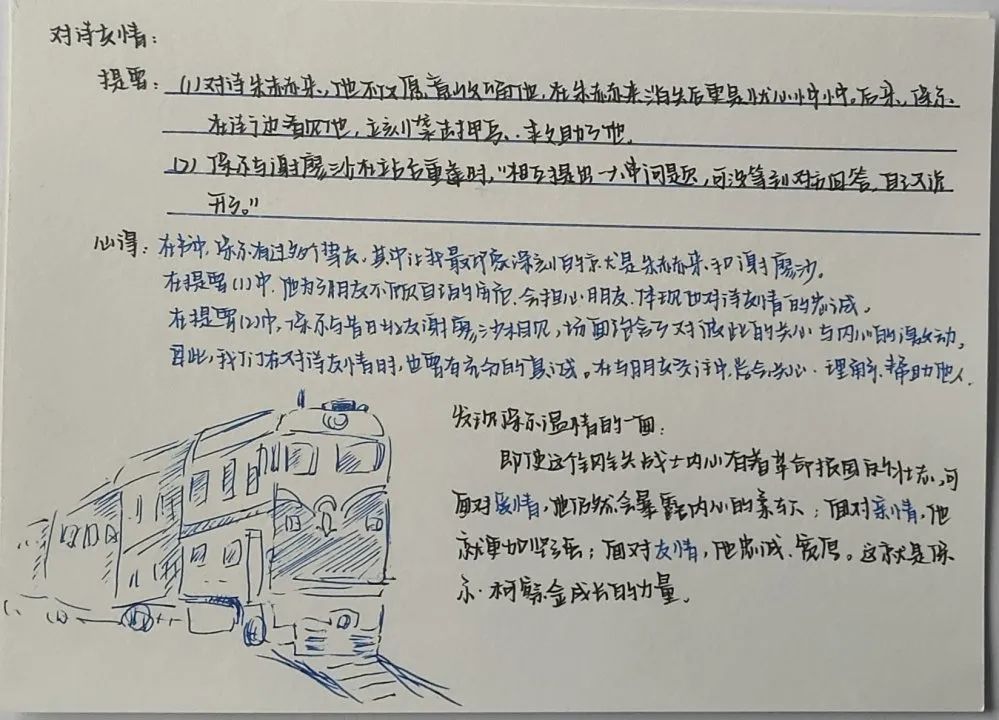 对待友情:
提要: (1)对待朱赫来,他不仅愿意收留他,在朱赫来消失后更是忧心忡忡。后来,保尔
在路边看见他,立刻袭击押兵,救助了他。
(2) 保尔与谢廖沙在站台重逢时,"相互提出一大串问题,可没等到对方回答,自己又说
开了。"
心得: 在书中,保尔有过多个挚友,其中让我最印象深刻的就是朱赫来和谢廖沙。
在提要(1)中,他为了朋友不顾自己的安危,会担心朋友,体现他对待友情的忠诚。
在提要(2)中,保尔与昔日战友谢廖沙相见,场面饱含了对彼此的关心与内心的激动,
因此,我们在对待友情时,也要有充分的真诚。在与朋友交往中,学会关心、理解、帮助他人.
发现保尔温情的一面:
即使这个钢铁战士内心有着革命报国的壮志,可
面对爱情,他仍然会暴露内心的柔软;面对亲情,他
就更加坚强;面对友情,他忠诚、宽厚。这就是保
尔·柯察金成长的力量。